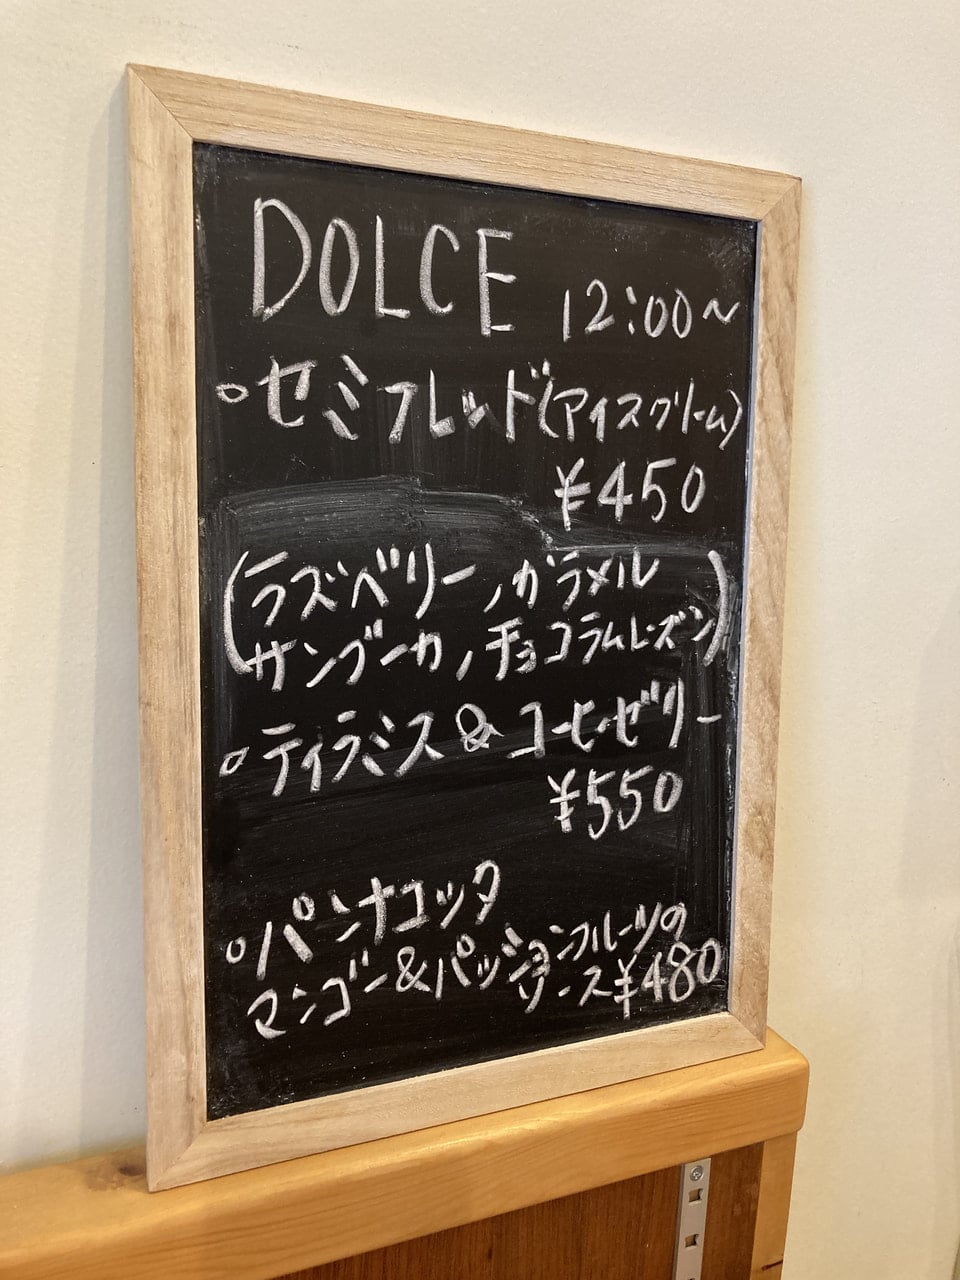 DOLCE 12:00~
○セミフレッド(アイスクリーム)
¥450
(ラズベリー,カラメル
サンブーカ,チョコラムレーズン)
○ティラミス&コーヒーゼリー
¥550
○パンナコッタ
マンゴー&パッションフルーツの
ソース¥480